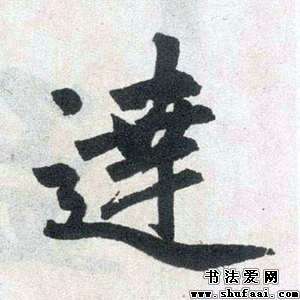 達
书法爱网
www.shufaai.com